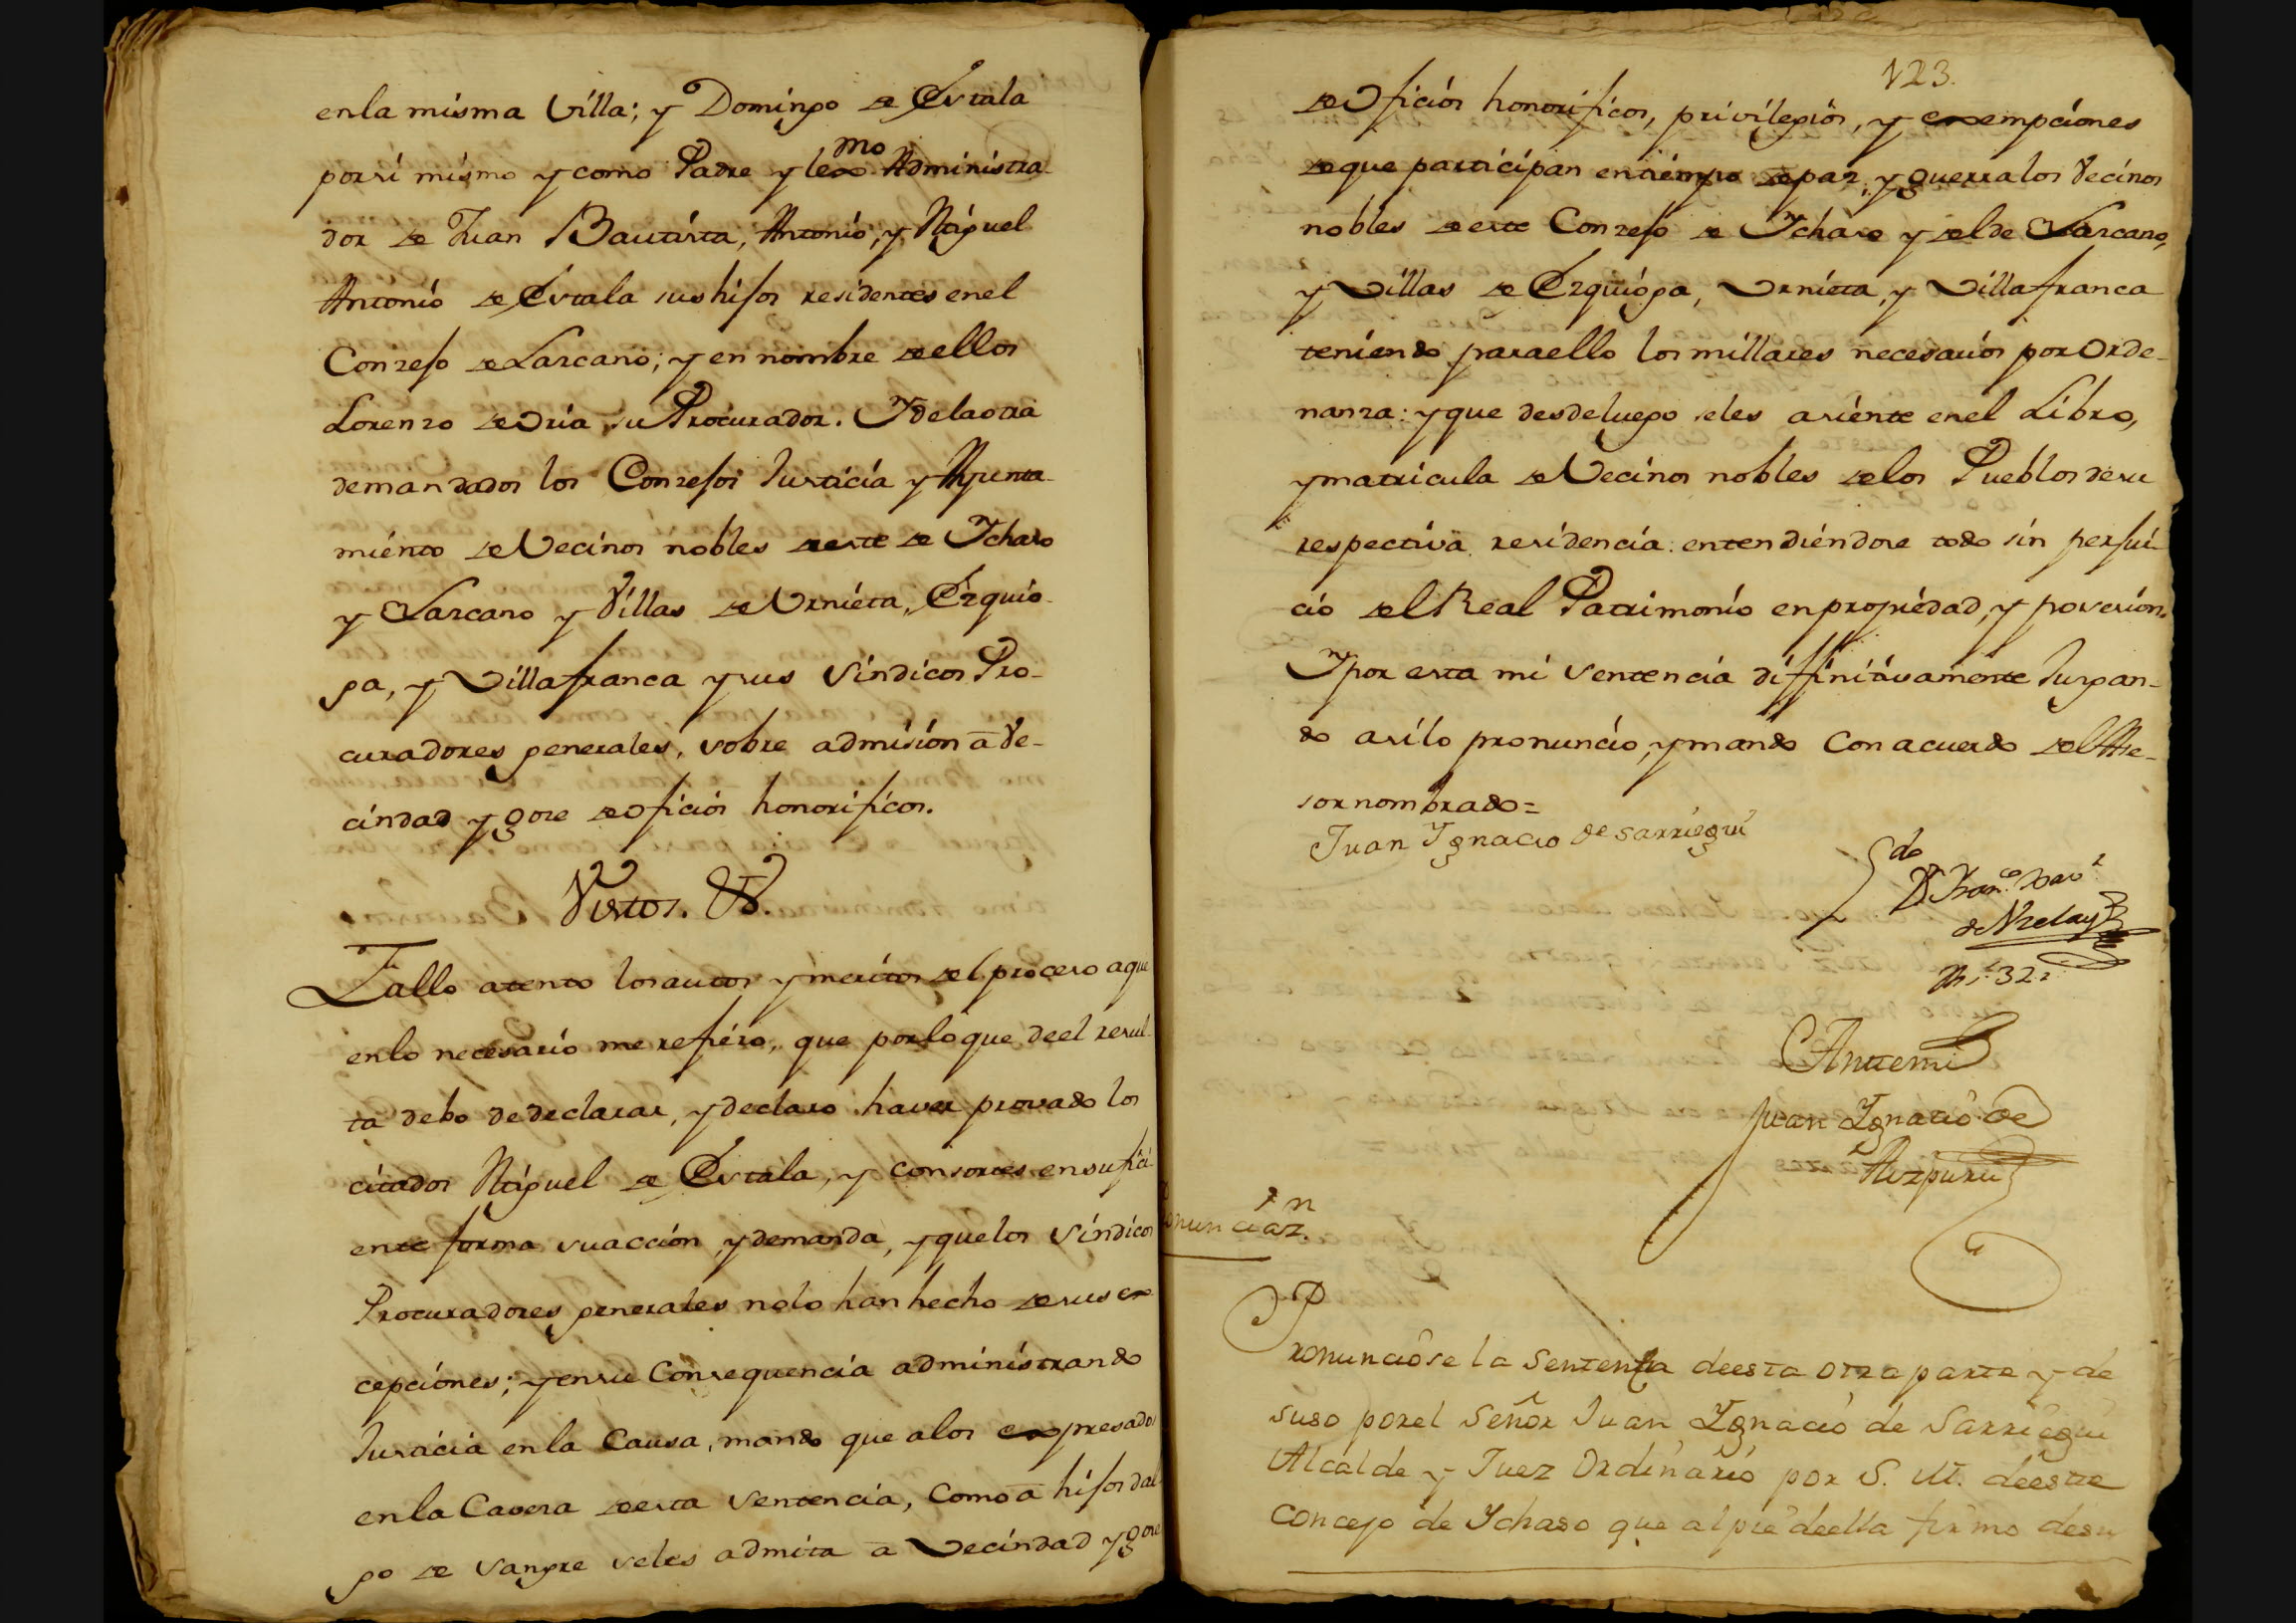 en la misma Villa; y Domingo de Estala
por si mismo y como Padre y lexmo Administra-
dor de Juan Bautista, Antonio, y Miguel
Antonio de Estala sus hijos residentes en el
Conzejo de Lazcano; y en nombre de ellos
Lorenzo de Oria su Procurador. Y de la otra
demandados los Conzejos Justicia y Ayunta-
miento de Vecinos nobles de este de Ychaso
y Lazcano y Villas de Urnieta, Ezquio-
ga, y Villafranca y sus Sindicos Pro-
curadores generales, sobre admisión à Ve-
cindad y goze de oficios honorificos.
Vistos. &.
Fallo atento los autos y meritos del proceso a que
en lo necesario me refiero, que por lo que de el resul-
ta debo de declarar, y declaro haver provado los
citados Miguel de Estala, y consortes en sufici-
ente forma su acción, y demanda, y que los Sindicos
Procuradores generales no lo han hecho de sus ex-
cepciones; y en su Consequencia administrando
Justicia en la Causa, mando que a los expresados
en la Cavesa de esta Sentencia, como à hijos dal
go de Sangre se les admita à Vecindad y goze
123.
de Oficios honorificos, privilegios, y exempciones
de que participan en tiempo de paz, y guerra los Vecinos
nobles de este Conzejo de Ychaso y del de Lazcano,
y Villas de Ezquioga, Urnieta, y Villafranca
teniendo para ello los millares necesarios por Orde-
nanza: y que desde luego se les asiente en el Libro,
y matricula de Vecinos nobles de los Pueblos de su
respectiva residencia: entendiéndose todo sin perjui-
cio del Real Patrimonio en propiedad, y posesion.
Y por esta mi Sentencia diffinitivamente Juzgan-
do asi lo pronuncio, y mando con acuerdo del Ase-
sor nombrado=
Juan Ygnacio de Sarriegui
Ldo
Dn Franco Xavr
de
Antemi
Juan Ygnacio de
Aizpuru
Pronunciazn.
Pronunciòse la Sentencia de esta otra parte y de
suso por el Señor Juan Ygnacio de Sarriegui
Alcalde y Juez Ordinario por S. M. de este
Concejo de Ychaso que al pie de ella firmo de su